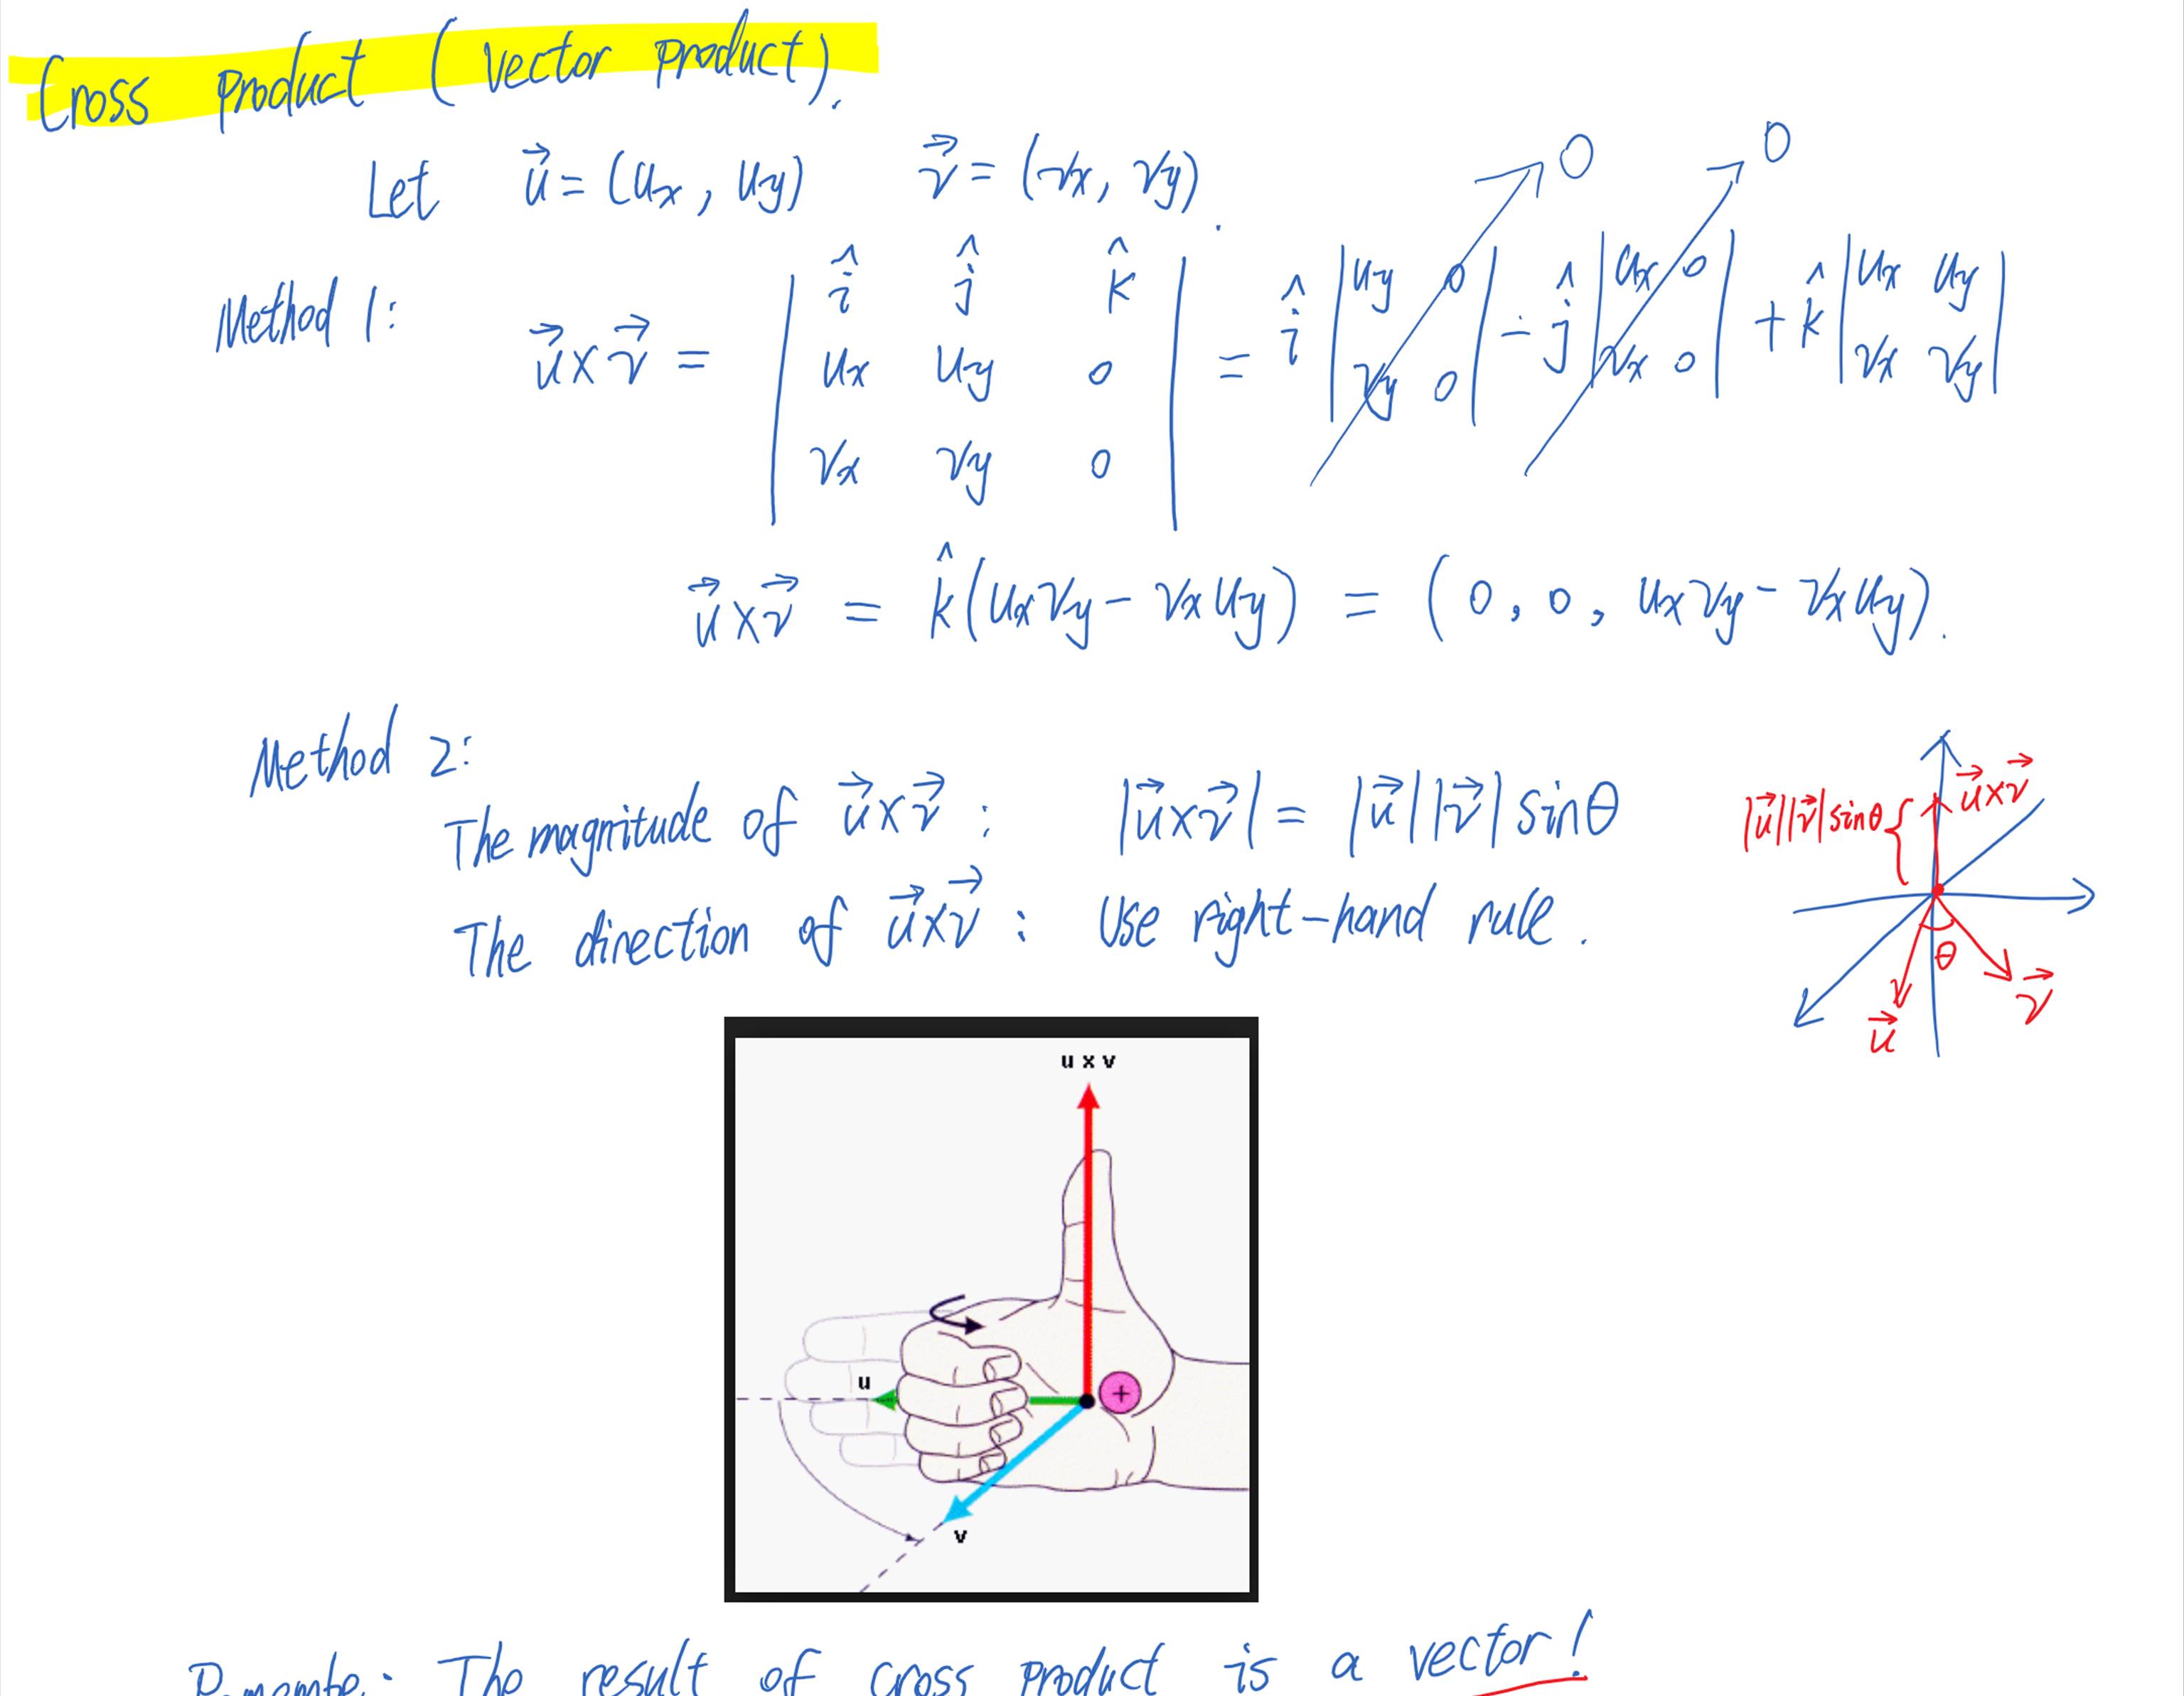 Cross product (vector product).
Let u⃗ = (ux, uy) v⃗ = (vx, vy).
Method 1: u⃗×v⃗ = | î ĵ k̂ ; ux uy 0 ; vx vy 0 | = î | uy 0 ; vy 0 | - ĵ | ux 0 ; vx 0 | + k̂ | ux uy ; vx vy |
0 0
u⃗×v⃗ = k̂(uxvy - vxuy) = (0, 0, uxvy - vxuy).
Method 2:
The magnitude of u⃗×v⃗ : |u⃗×v⃗| = |u⃗||v⃗| sinθ
The direction of u⃗×v⃗ : Use right-hand rule.
|u⃗||v⃗|sinθ
u⃗×v⃗
θ
u⃗
v⃗
u x v
u
+
v
The result of cross product is a vector!